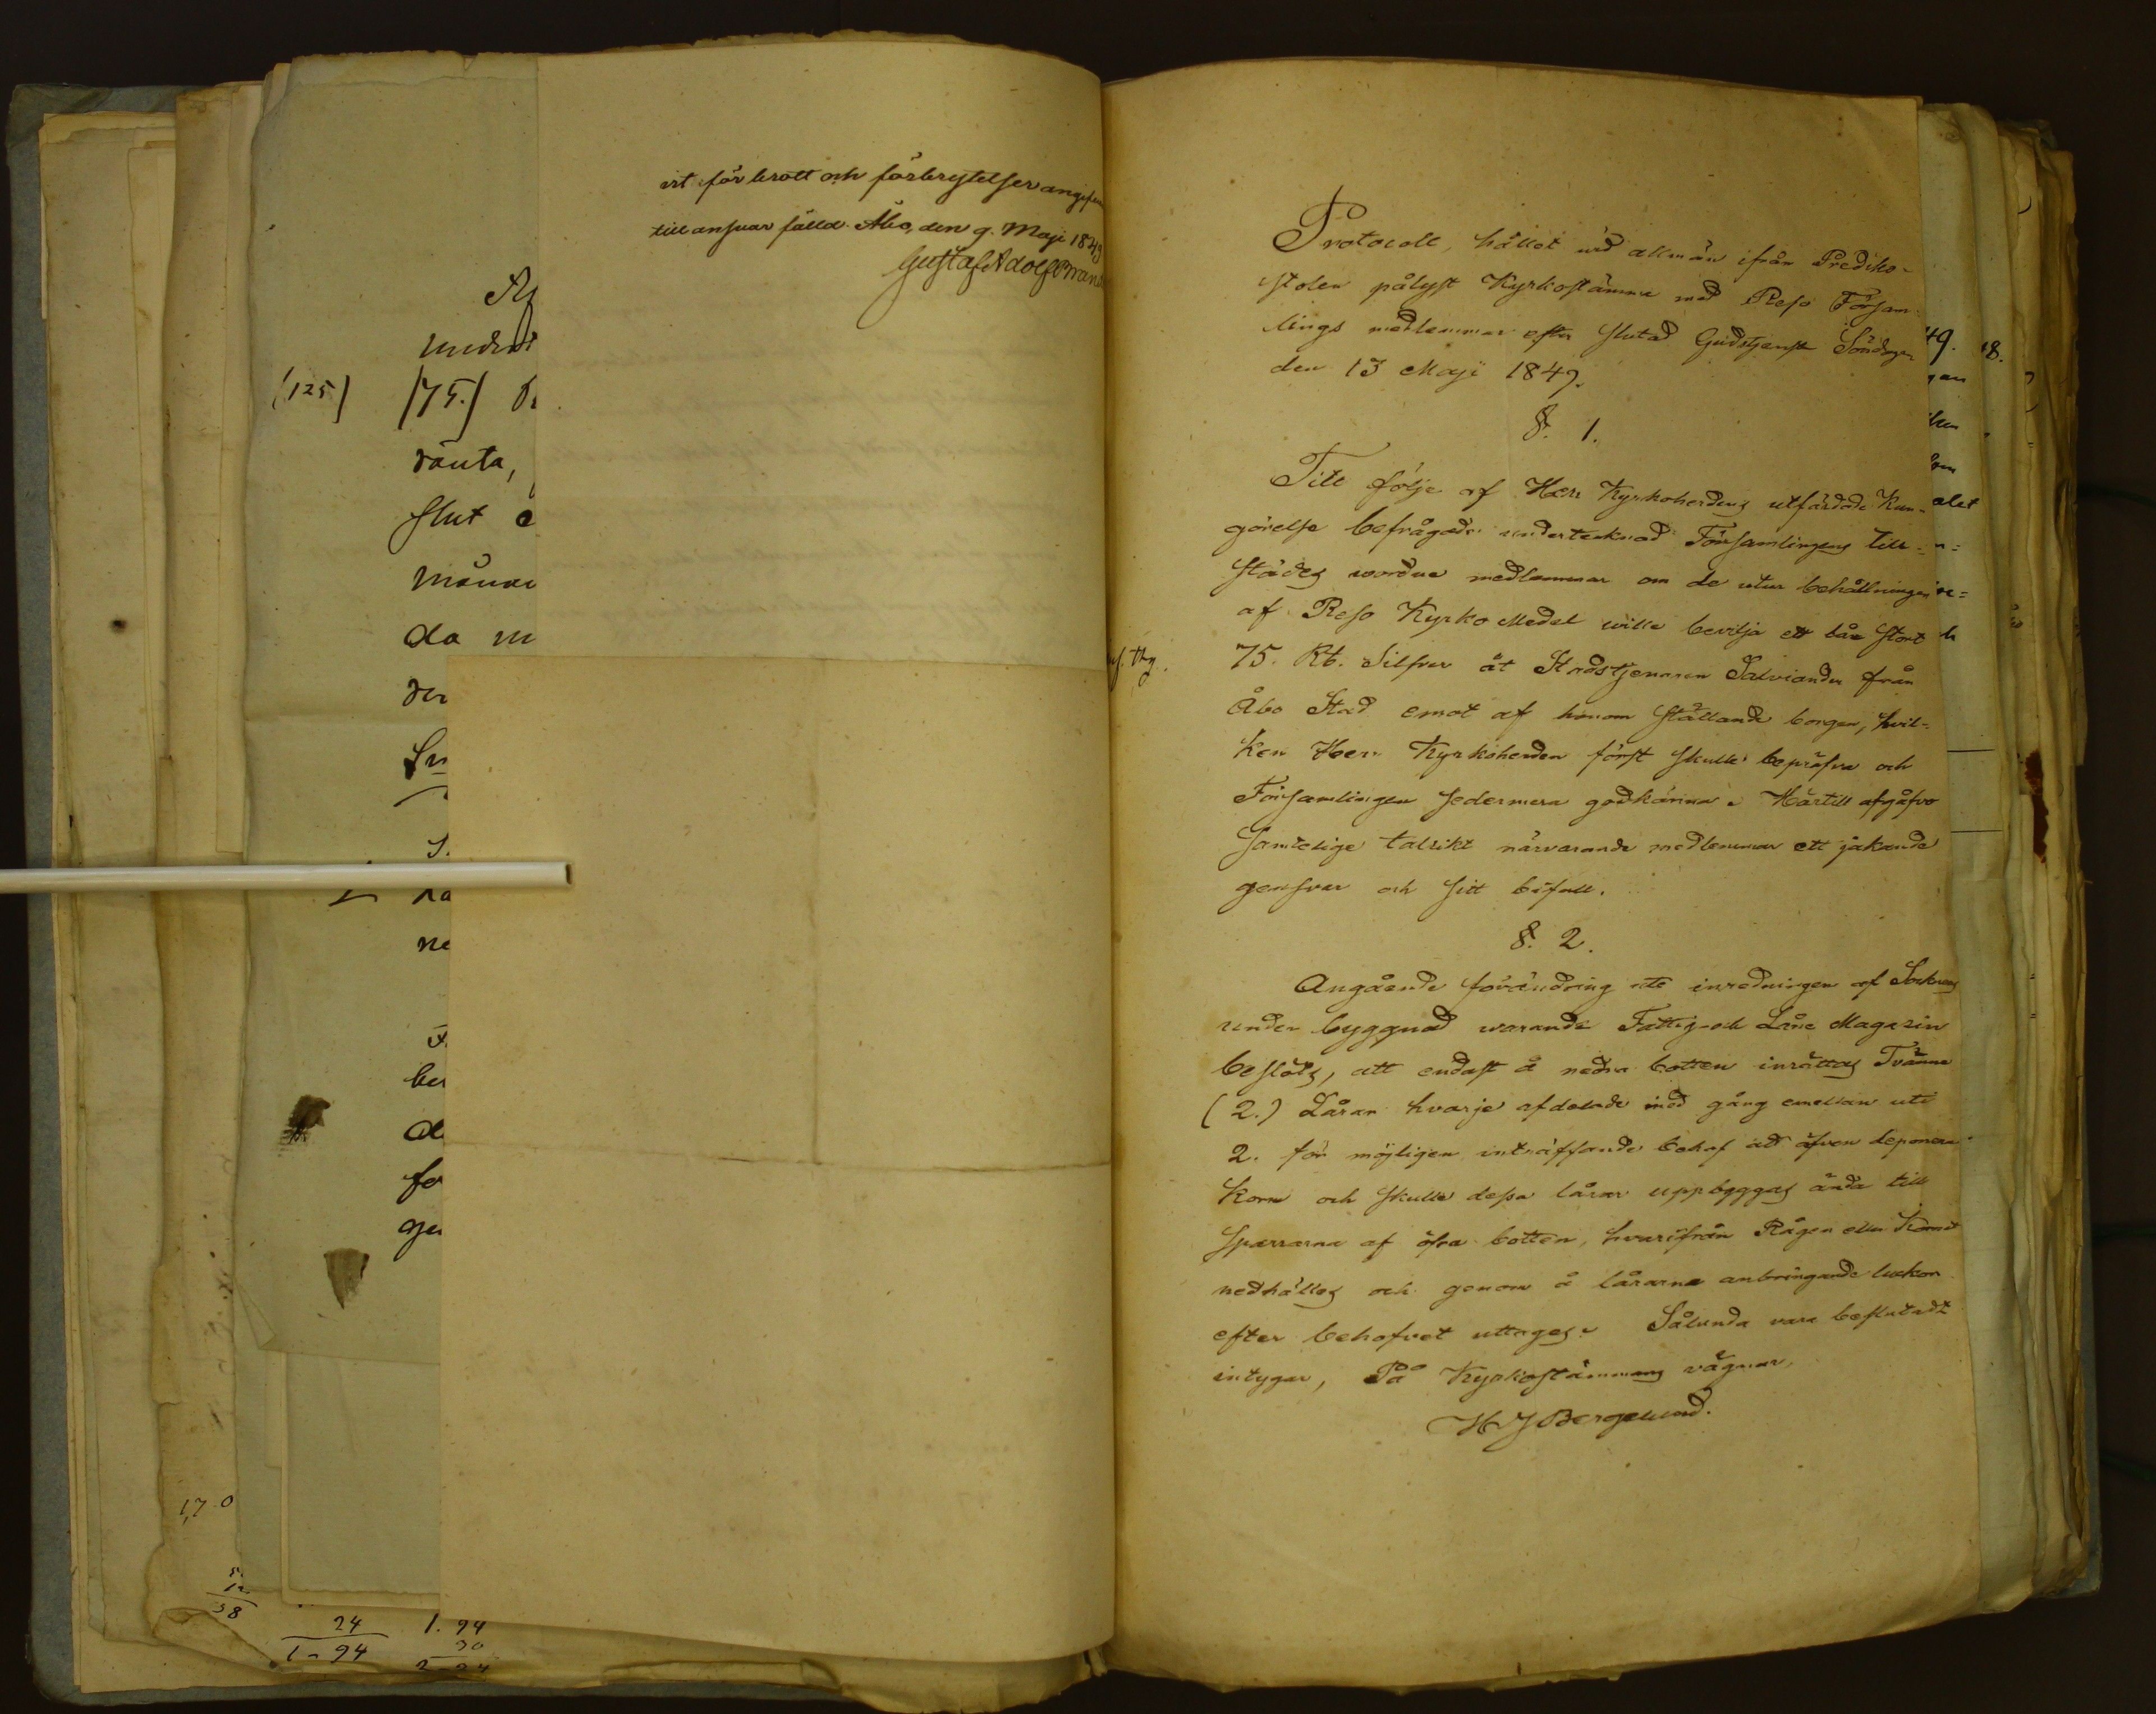 ert för brott och förbrytelser angifven
till ansvar fälld. Åbo, den 9. Maji 1849
Gustaf Adolf
(125)
(75.)
ränta,
slut
da m
Protocoll, hållet vid allmän ifrån Prediko-
stolen pålyst Kyrkostämma med Reso Försam-
lings medlemmar efter slutad Gudstjenst Söndagen
den 13 Maji 1849.
§. 1.
Till följe af Herr Kyrkoherdens utfärdade Kun-
görelse befrågade undertecknad Församlingens till-
städes wordne medlemmar om de utur behållningen
af Reso Kyrko Medel wille bevilja ett lån stort
75. Rb. Silfver åt Stadstjenaren Salviander från
Åbo Stad emot af honom ställande borgen, hvil-
ken Herr Kyrkoherden först skulle bepröfva och
Församlingen sedermera godkänna. Härtill afgåfvo
samtelige talrikt närvarande medlemmar ett jakande
gensvar och sitt bifall.
§. 2.
Angående förändring uti inredningen af Socknens
under byggnad warande Fattig- och Låne Magasin
beslöts, att endast å nedra botten inrättas Tvänne
(2.) Lårar hvarje afdelade med gång emellan uti
2. för möjligen inträffande behof att äfven deponera
Korn och skulle dessa lårar uppbyggas ända till
sparrarna af öfra botten, hvarifrån Rågen eller Kornet
nedhälles och genom å lårarne anbringande luckor
efter behofvet uttages. Sålunda vara beslutadt
intygar, På Kyrkostämmans vägnar,
H J Bergelund.
49.
18.
1,7 0
58
24
1-94
1. 94